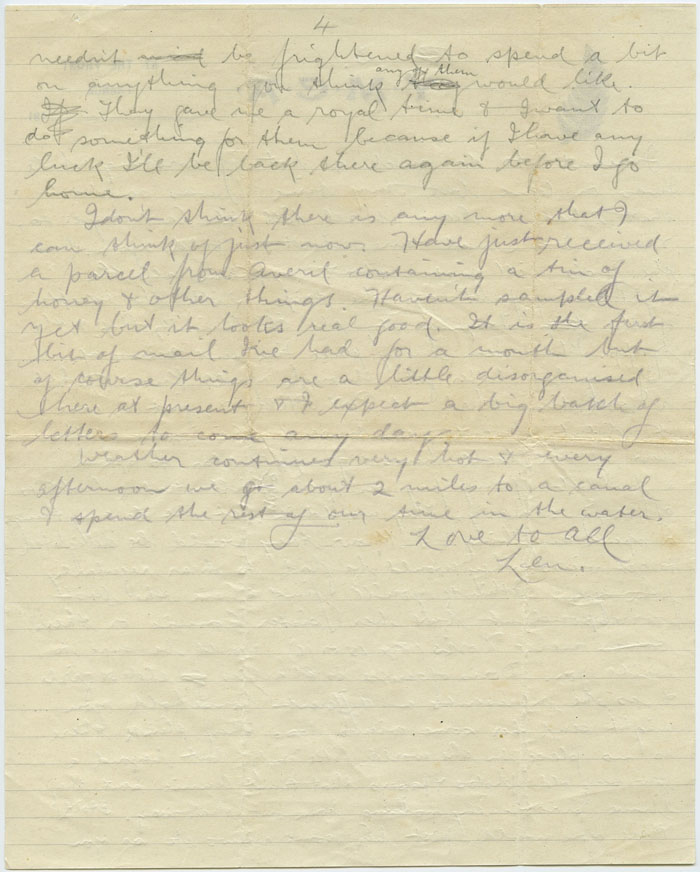 4
needn't mind be frightened to spend a bit
on anything you think any of them they would like.
If They gave me a royal time & I want to
do something for them because if I have any
luck I'll be back there again before I go
home.
I don't think there is any more that I
can think of just now. Have just received
a parcel from Averil containing a tin of
honey & other things. Haven't sampled it
yet but it looks real good. It is the first
bit of mail I've had for a month but
of course things are a little disorganised
here at present & I expect a big batch of
letters to come any day.
Weather continues very hot & every
afternoon we go about 2 miles to a canal
& spend the rest of our time in the water.
Love to all
Len.